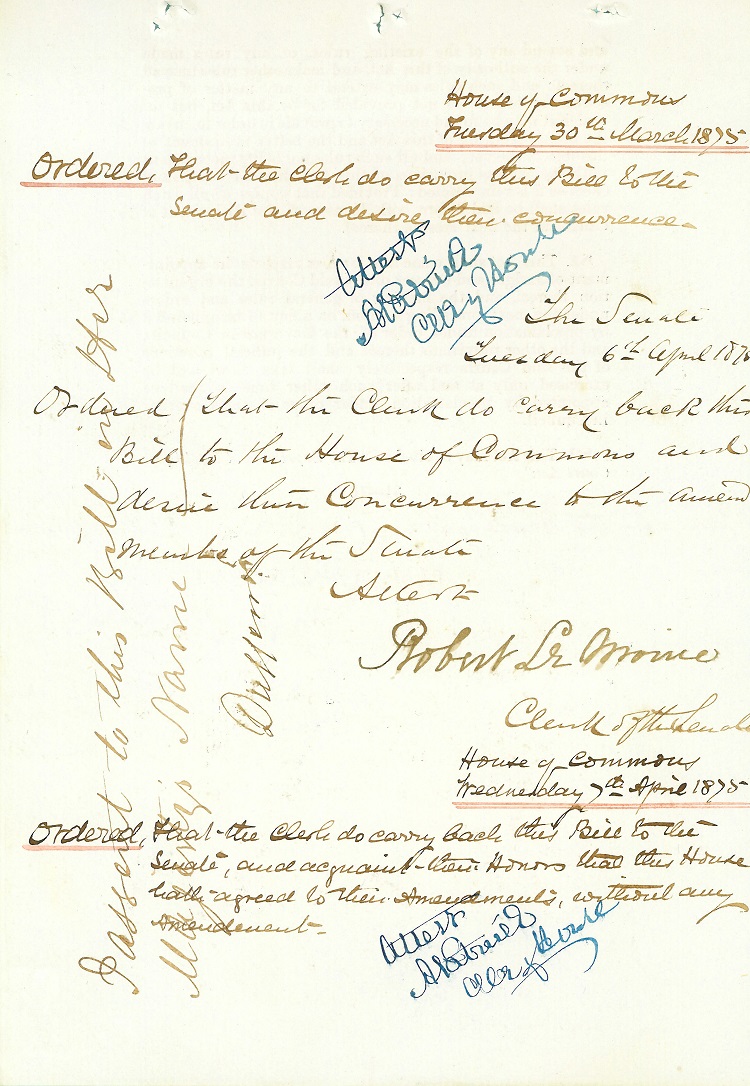 House of Commons
Tuesday 30th March 1875
Ordered, That the Clerk do carry this Bill to the
Senate and desire their concurrence.
Attest
Clk of House
The Senate
Tuesday 6th April 187
Ordered That the Clerk do carry back this
Bill to the House of Commons and
desire their Concurrence to the amend
ments of the Senate
Attest
Robert Le Moine
Clerk of the Senate
House of Commons
Wednesday 7th April 1875
Ordered, That the Clerk do carry back this Bill to the
Senate, and acquaint their Honors that this House
hath agreed to their Amendments, without any
Amendment.
Attest
Clk of House
I assent to this Bill in Her
Majesty's Name
Dufferin